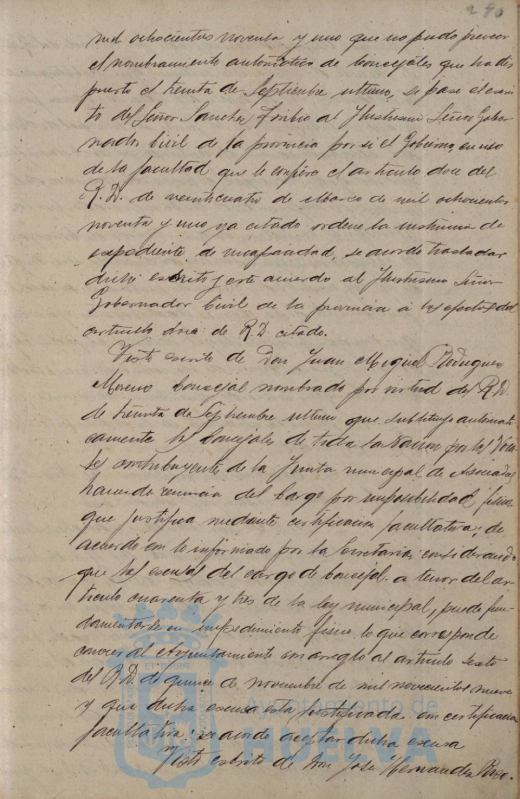 290
mil ochocientos noventa y uno que no pudo preveer
el nombramiento automático de Concejales que ha dis
puesto el treinta de Septiembre ultimo, se pase el escri
to del Señor Sanchez Toribio al Ilustrisimo Señor Gober
nador Civil de la provincia por si el Gobierno, en uso
de la facultad que le confiere el articulo doce del
R. D. de veinticuatro de Marzo de mil ochocientos
noventa y uno, ya citado ordena la instruccion de
expediente de incapacidad, se acordó trasladar
dicho escrito y este acuerdo al Ilustrisimo Señor
Gobernador Civil de la provincia á los efectos del
articulo doce de R. D. citado.
Visto escrito de Don Juan Miguel Rodriguez
Moreno Concejal nombrado por virtud del R. D.
de treinta de Septiembre ultimo que substituyó automati
camente los Concejales de toda la Nacion por los Voca
les contribuyentes de la Junta municipal de Asociados
haciendo renuncia del cargo por imposibilidad fisica
que justifica mediante certificacion facultativa; de
acuerdo con lo informado por la Secretaria; considerando
que las excusas del cargo de Concejal a tenor del ar
ticulo cuarenta y tres de la ley municipal, puede fun
damentarse en impedimento fisico, lo que corresponde
conocer al Ayuntamiento con arreglo al articulo sexto
del R. D. de quince de Noviembre de mil novecientos nueve
y que dicha excusa está justificada con certificacion
facultativa: se acordó aceptar dicha excusa
Visto escrito de Don José Hernandez
Ayuntamiento de
HUELVA